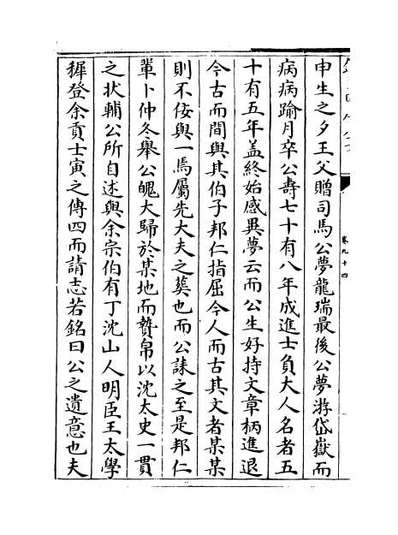 申生之夕王父贈司馬公夢龍瑞最後公夢游岱嶽而
病病踰月卒公壽七十有八年成進士負大人名者五
十有五年蓋終始感異夢云而公生好持文章柄進退
今古而間與其伯子邦仁指屈今人而古其文者某某
則不佞與一焉屬先大夫之葬也而公誄之至是邦仁
輩卜仲冬舉公魄大歸於某地而贄帛以沈太史一貫
之狀輔公所自述與余宗伯有丁沈山人明臣王太學
穉登余貢士寅之傳四而請志若銘曰公之遺意也夫
卷九十四